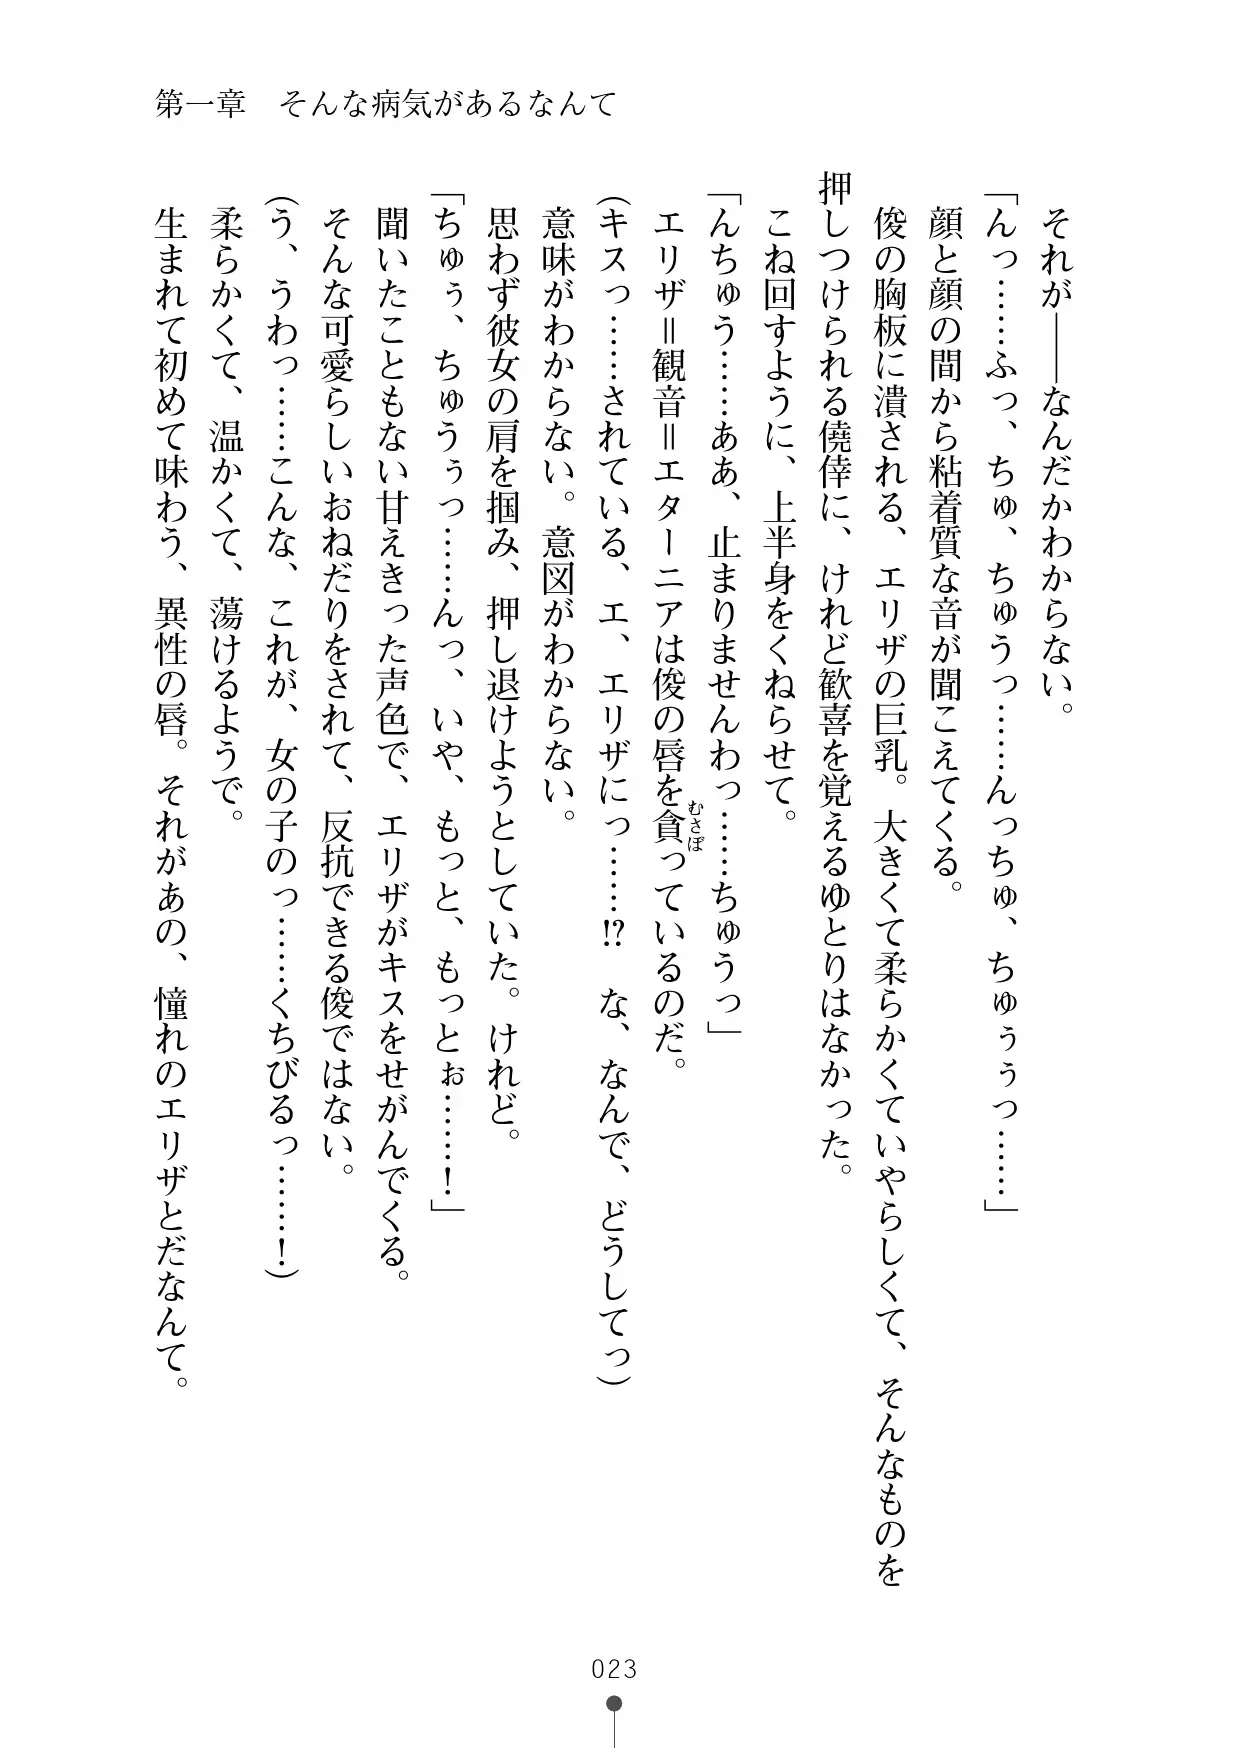 第一章　そんな病気があるなんて
それが――なんだかわからない。
「んっ……ふっ、ちゅ、ちゅうっ……んっちゅ、ちゅぅぅっ……」
顔と顔の間から粘着質な音が聞こえてくる。
俊の胸板に潰される、エリザの巨乳。大きくて柔らかくていやらしくて、そんなものを
押しつけられる僥倖に、けれど歓喜を覚えるゆとりはなかった。
こね回すように、上半身をくねらせて。
「んちゅう……ああ、止まりませんわっ……ちゅうっ」
エリザ＝観音＝エターニアは俊の唇を貪っているのだ。
むさぼ
(キスっ……されている、エ、エリザにっ……!?　な、なんで、どうしてっ)
意味がわからない。意図がわからない。
思わず彼女の肩を掴み、押し退けようとしていた。けれど。
「ちゅぅ、ちゅうぅっ……んっ、いや、もっと、もっとぉ……！」
聞いたこともない甘えきった声色で、エリザがキスをせがんでくる。
そんな可愛らしいおねだりをされて、反抗できる俊ではない。
(う、うわっ……こんな、これが、女の子のっ……くちびるっ……！)
柔らかくて、温かくて、蕩けるようで。
生まれて初めて味わう、異性の唇。それがあの、憧れのエリザとだなんて。
023